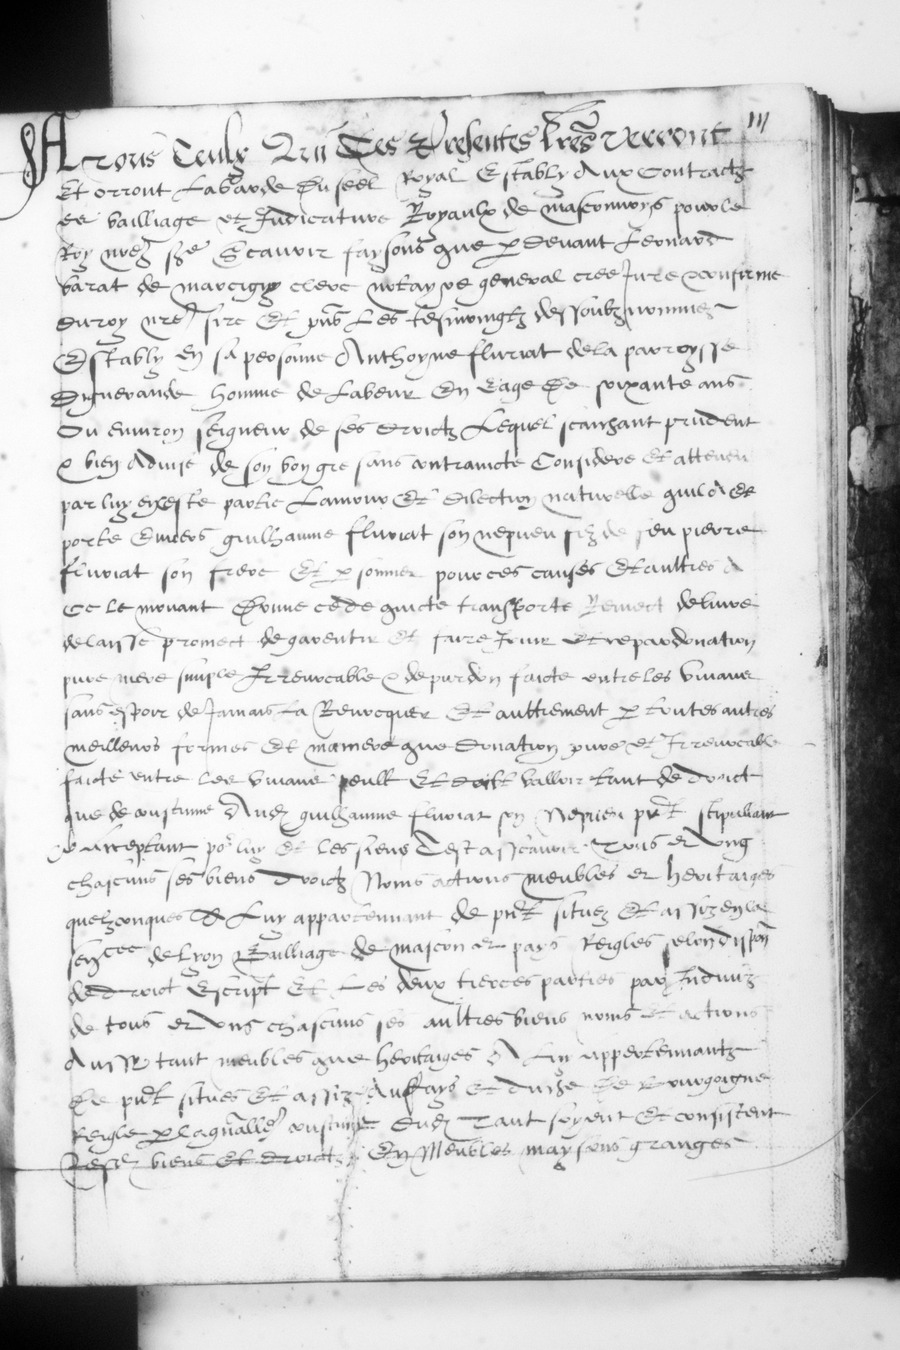 iij
A Tous Ceulx Qui Ces Presentes lres verront
Et orront La Garde Du seel Royal Estably Aux Contractz
es bailliage et Judicature Royaulx de masconnoys pour le
Roy nre sre Scavoir faysons que p devant Leonard
barat de marcigny clerc notayre general cree Jure confirme
du roy nre sire Et pns Les tesmoingtz dessoubz nommez
Estably En sa personne Anthoyne fluriat de la parroysse
Diguerande homme de Labeur En Eage De soixante ans
Ou environ seigneur de ses droictz Lequel scaichant prudent
& bien Advise de son bon gre sans contraincte Considere Et attendu
par luy en ceste partie Lamour Et dilection naturelle quil a et
porte Envers guilhaume fluriat son nepveu filz de feu pierre
fluriat son frere Et p sonnier pour ces causes Et aultres A
Ce le mouvant Donne cede quicte transporte Remect delivre
delaisse promect de garentir Et faire Jouir Et repar donation
pure mere simple Irrevocable & de pur don faicte entre les vivans
sans espoir de Jamais La Revocquer Et aultrement p toutes autres
meilleurs formes Et maniere que Donation pure et Irrevocable
faicte entre les vivans peult Et doibt valloir tant de droict
que de coustume Aud guilhaume fluriat son Nepveu pnt stipullant
& acceptant por luy Et les siens Cest assavoir Tous et ung
chascuns ses biens droictz Noms actions meubles et heritaiges
quelzconques A Luy appartennant de pnt situez Et assiz en la
sencee de Lyon Bailliage de mascon et pays Reigles selon disposon
de droict Escript Et Les deux tierces parties par Indiviz
de tous et ungs chascuns ses aultres biens noms et actions
Aussi tant meubles que heritaiges A luy appertennantz
De pnt situes Et assiz Au pays Et duche De Bourgoigne
Reigle p la gnalle coustume Dud Tant soyent Et consistent
Lesd biens Et droictz En Meubles maysons granges